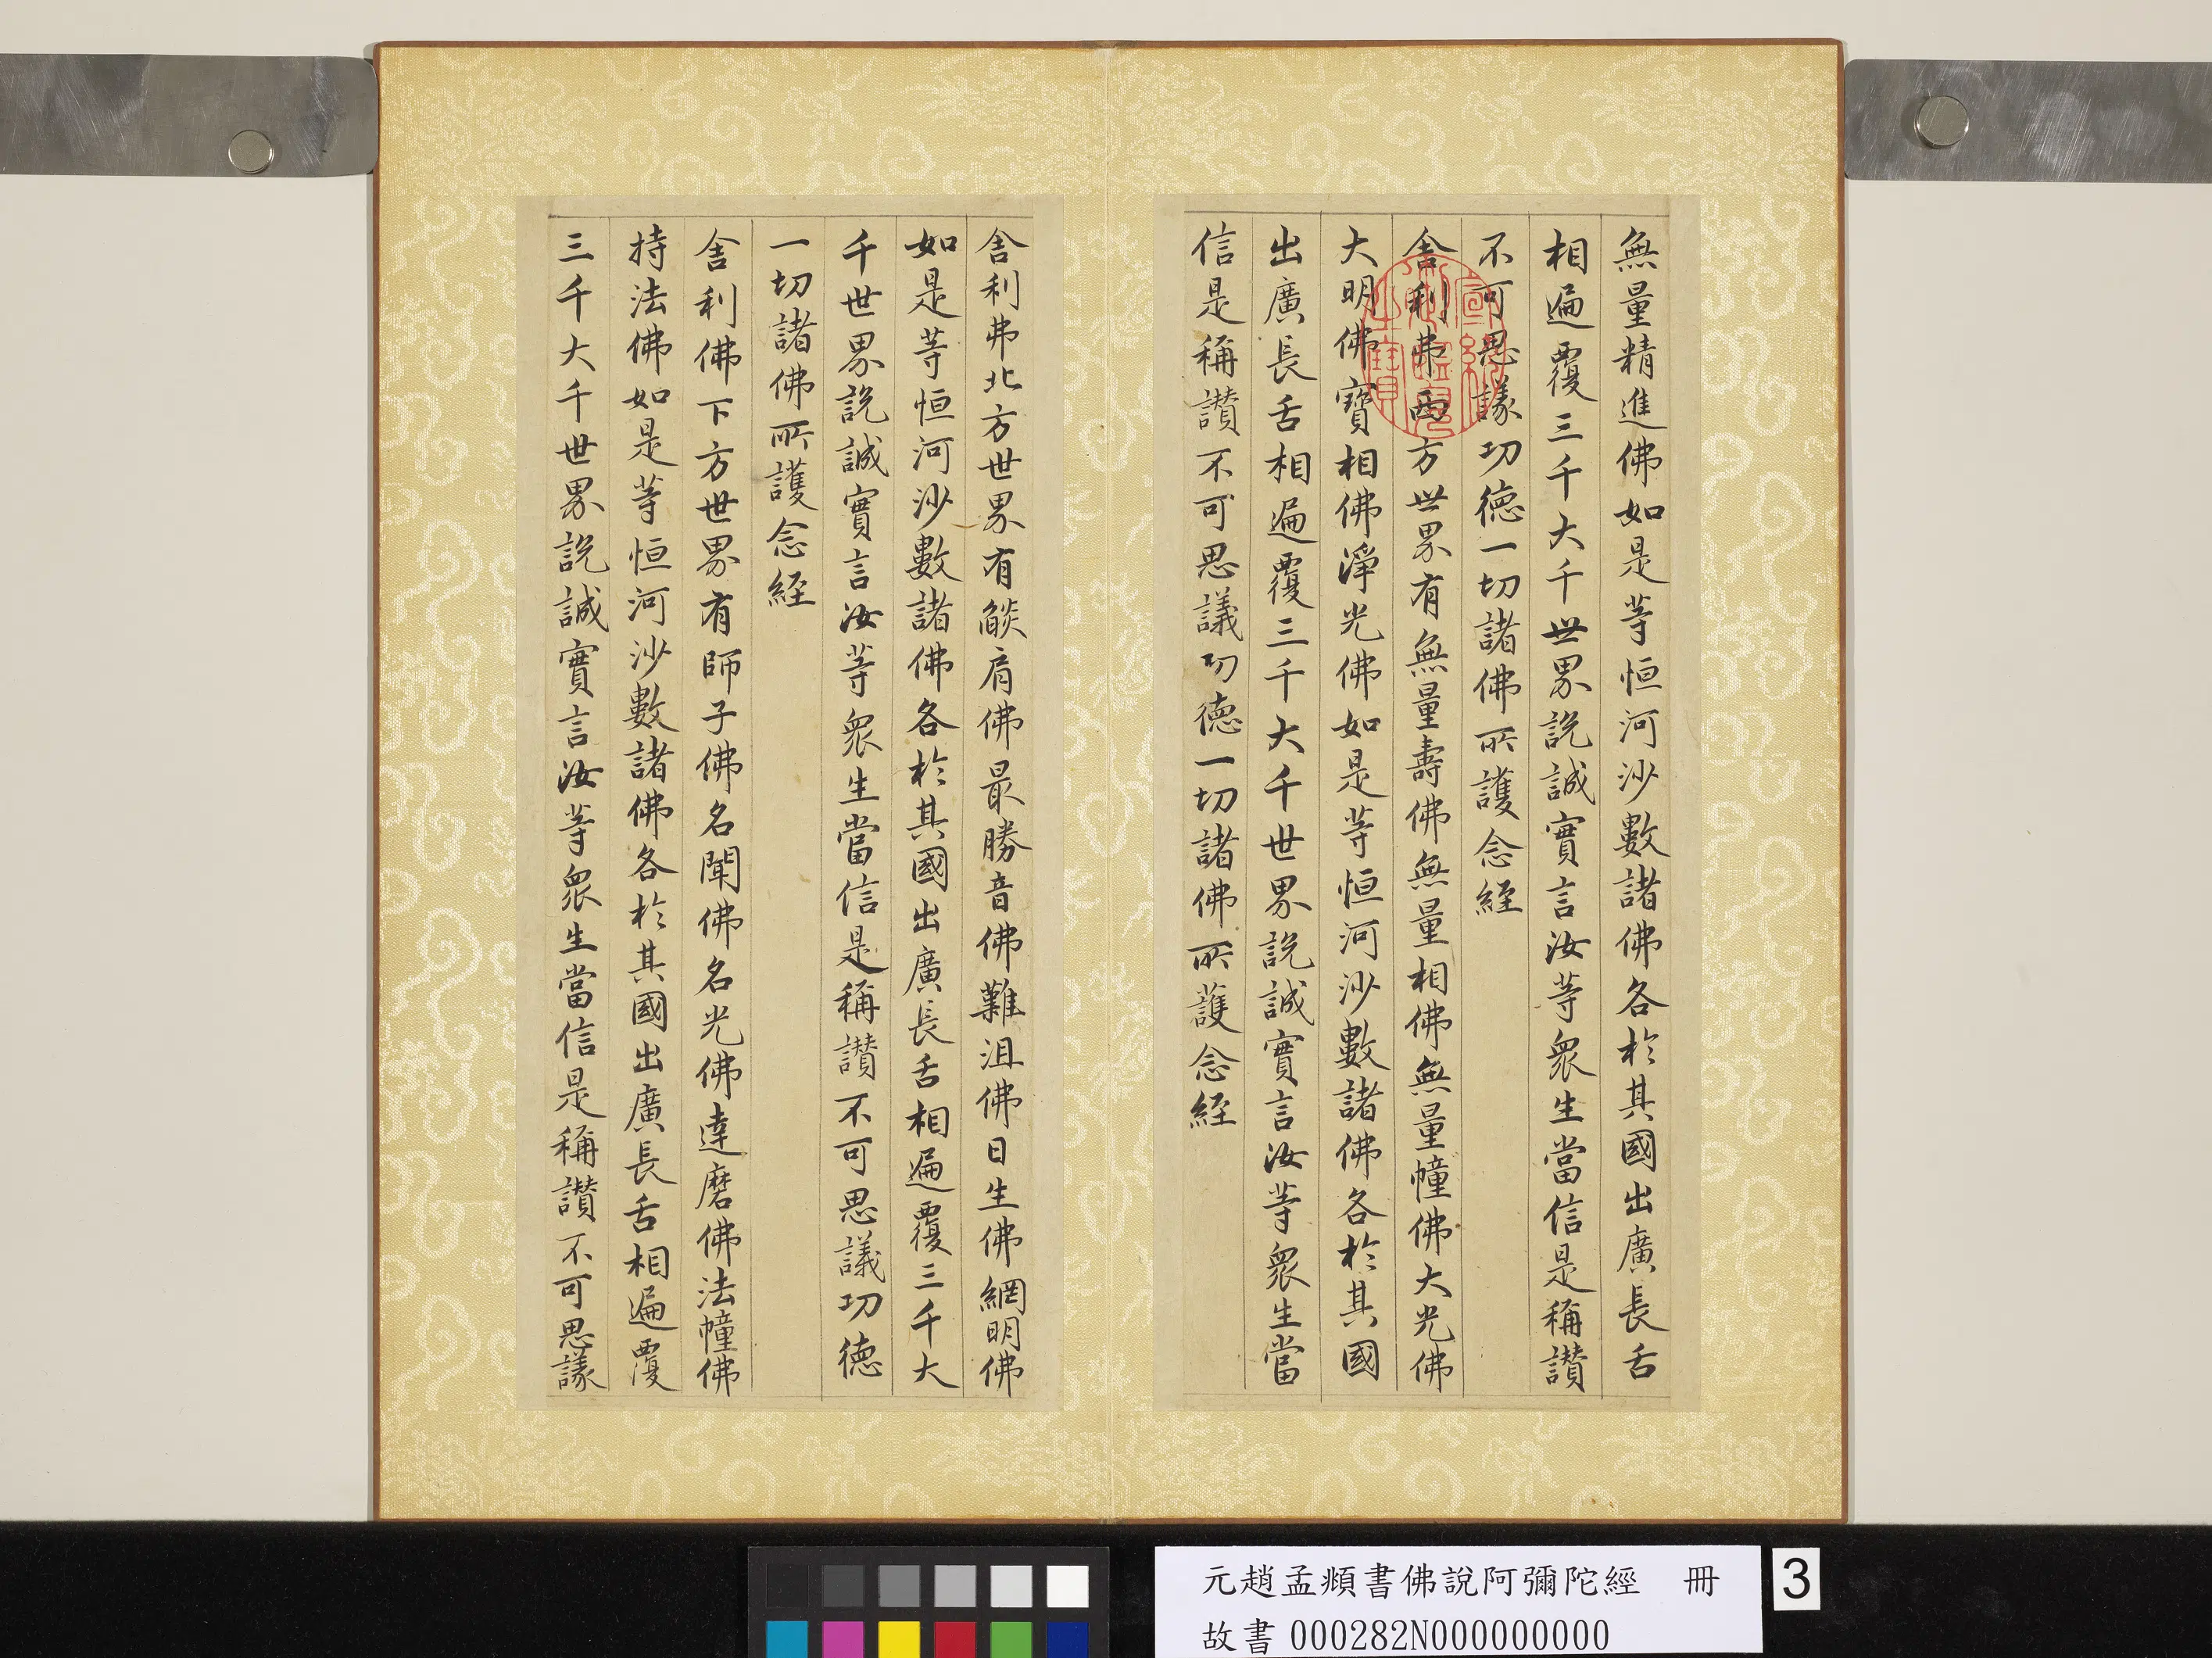 無量精進佛如是等恒河沙數諸佛各於其國出廣長舌
相遍覆三千大千世界說誠實言汝等衆生當信是稱讃
不可思議功德一切諸佛所護念經
舍利弗西方世界有無量壽佛無量相佛無量幢佛大光佛
大明佛寶相佛淨光佛如是等恒河沙數諸佛各於其國
出廣長舌相遍覆三千大千世界說誠實言汝等衆生當
信是稱讃不可思議功德一切諸佛所護念經
舍利弗北方世界有燄肩佛最勝音佛難沮佛日生佛網明佛
如是等恒河沙數諸佛各於其國出廣長舌相遍覆三千大
千世界說誠實言汝等衆生當信是稱讃不可思議功德
一切諸佛所護念經
舍利佛下方世界有師子佛名聞佛名光佛達磨佛法幢佛
持法佛如是等恒河沙數諸佛各於其國出廣長舌相遍覆
三千大千世界說誠實言汝等衆生當信是稱讃不可思議
元趙孟頫書佛說阿彌陀經　冊
故書000282N000000000
3